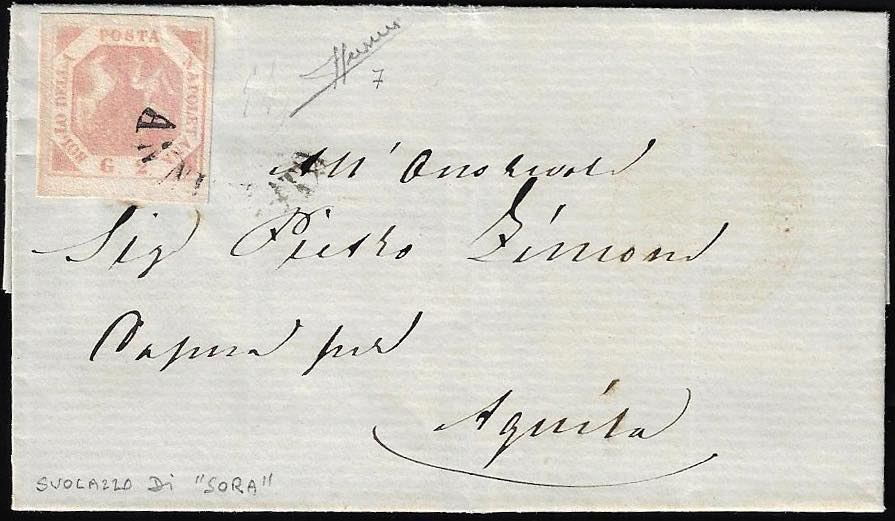 POSTA
NAPOLETANA
BOLLO DELLA
G 2
7
All' Onorevole
Sig Pietro Zimoni
Capua per
Aquila
SVOLAZZO Di "SORA"